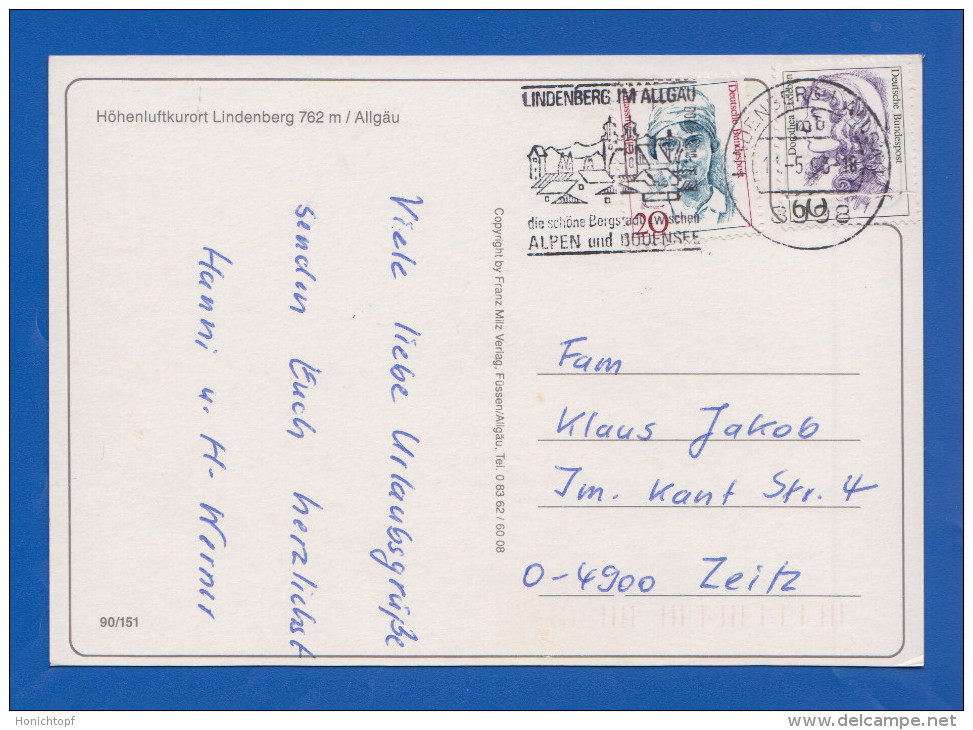 Höhenluftkurort Lindenberg 762 m / Allgäu
Viele liebe Urlaubsgrüße
senden Euch herzlichst
Hanni u. H. Werner
90/151
Copyright by Franz Milz Verlag, Füssen/Allgäu, Tel. 0 83 62 / 60 08
LINDENBERG IM ALLGÄU
die schöne Bergstadt zwischen
ALPEN und BODENSEE
Deutsche Bundespost
20
Deutsche Bundespost
Dorothea Erxleben
60
Fam
Klaus Jakob
Im. Kant Str. 4
O-4900 Zeitz
Honichtopf
www.delcampe.net